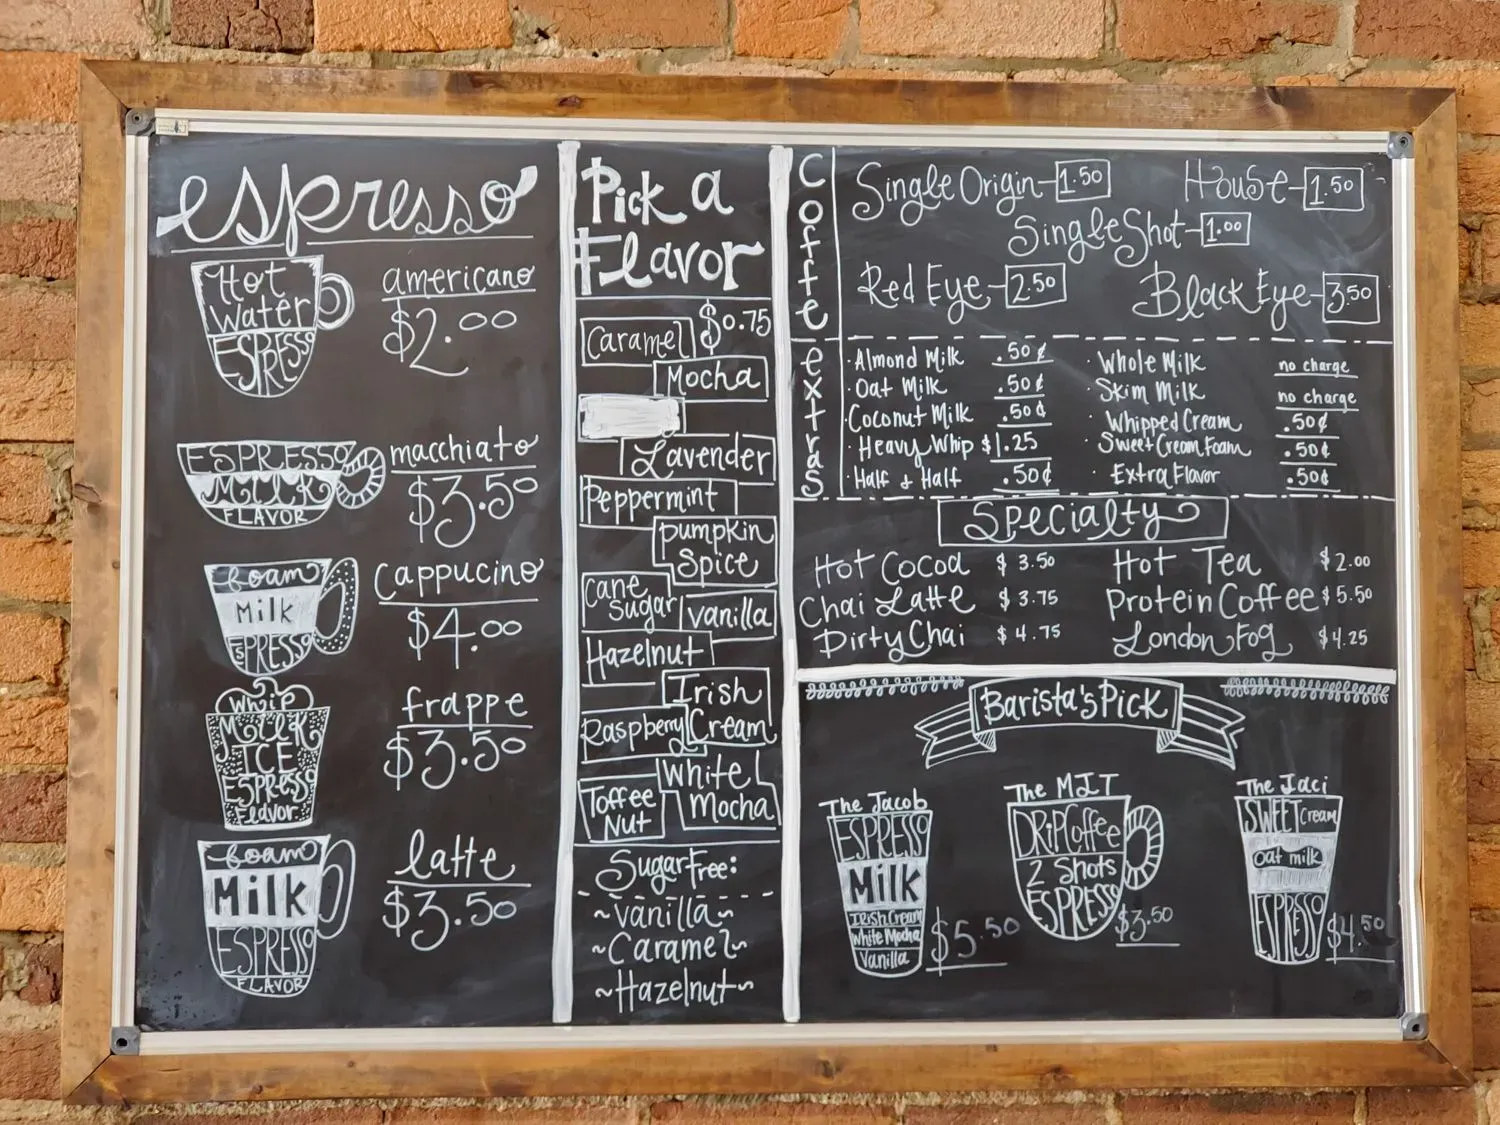 espresso
Hot
Water
ESPRESSO
americano
$2.00
ESPRESSO
Milk
FLAVOR
macchiato
$3.50
foam
Milk
ESPRESSO
cappucino
$4.00
Whip
Milk
ICE
ESPRESSO
Flavor
frappe
$3.50
foam
Milk
ESPRESSO
FLAVOR
latte
$3.50
Pick a
Flavor
$0.75
Caramel
Mocha
Lavender
Peppermint
pumpkin
Spice
Cane
Sugar
vanilla
Hazelnut
Irish
Cream
Raspberry
White
Mocha
Toffee
Nut
Sugar Free:
~Vanilla~
~Caramel~
~Hazelnut~
Coffee
Single Origin-1.50
House-1.50
Single Shot-1.00
Red Eye-2.50
Black Eye-3.50
extras
·Almond Milk .50¢
·Oat Milk .50¢
·Coconut Milk .50¢
·Heavy Whip $1.25
·Half & Half .50¢
·Whole Milk no charge
·Skim Milk no charge
·Whipped Cream .50¢
·Sweet Cream Foam .50¢
·Extra Flavor .50¢
Specialty
Hot Cocoa $3.50
Chai Latte $3.75
Dirty Chai $4.75
Hot Tea $2.00
Protein Coffee $5.50
London Fog $4.25
Barista's Pick
The Jacob
ESPRESSO
Milk
Irish Cream
White Mocha
Vanilla
$5.50
The MIT
DRiP Coffee
2 Shots
ESPRESSO
$3.50
The Jaci
SWEET Cream
Oat milk
ESPRESSO
$4.50